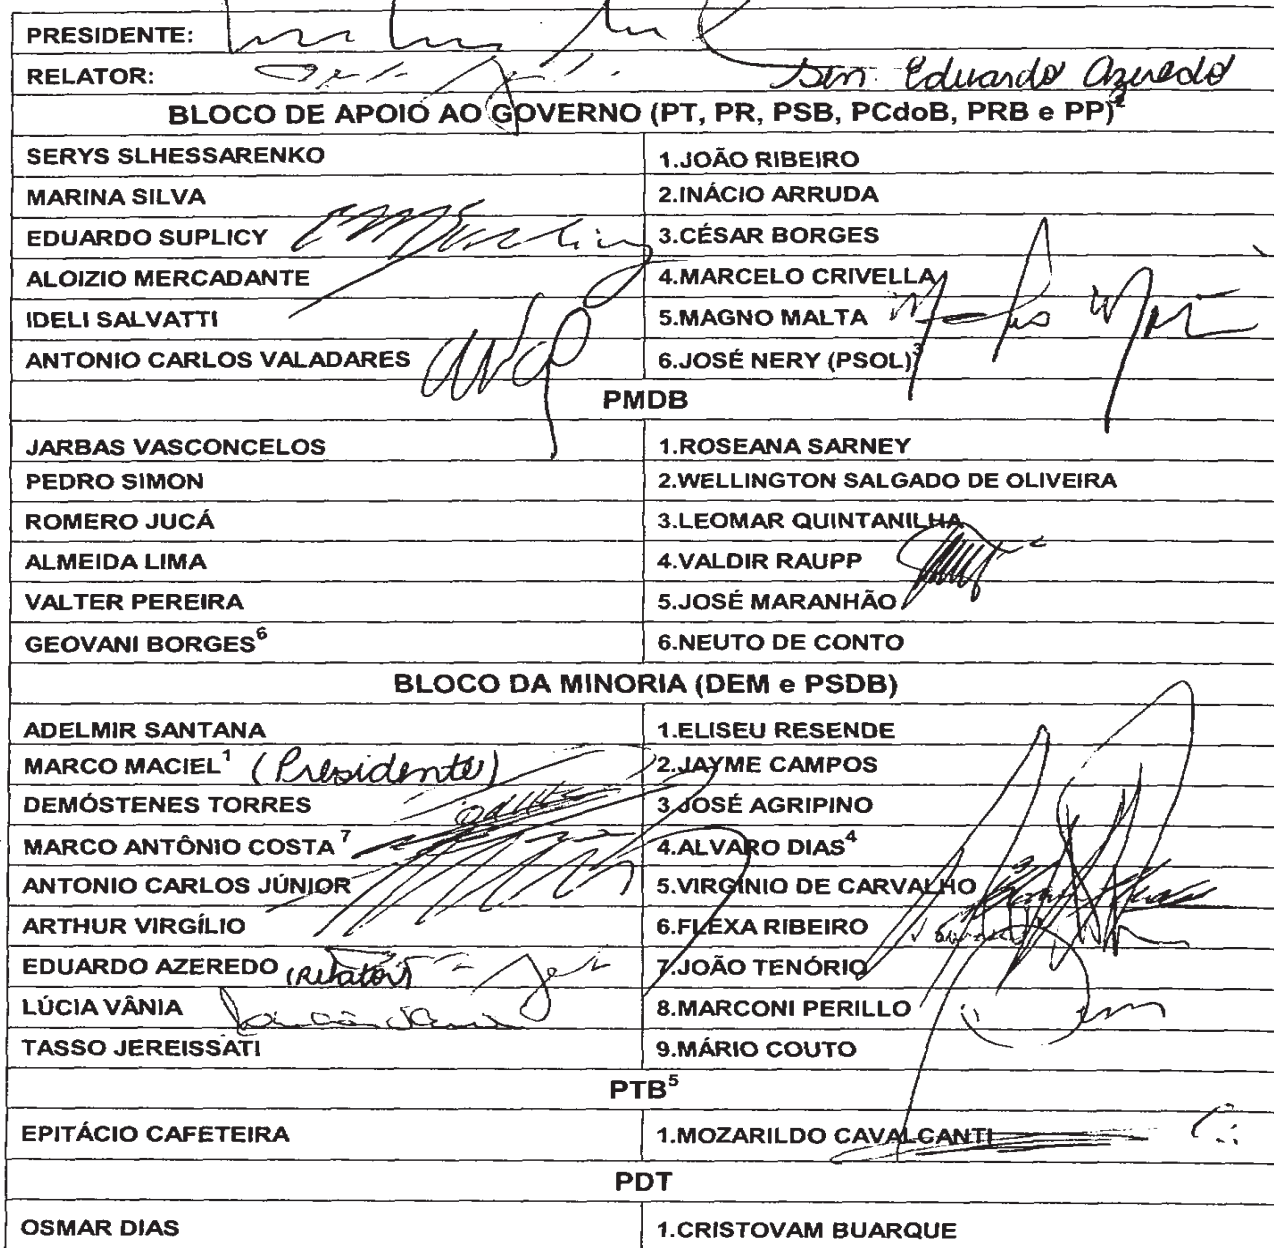 PRESIDENTE:
RELATOR: Sen. Eduardo Azeredo
BLOCO DE APOIO AO GOVERNO (PT, PR, PSB, PCdoB, PRB e PP)²
SERYS SLHESSARENKO 1.JOÃO RIBEIRO
MARINA SILVA 2.INÁCIO ARRUDA
EDUARDO SUPLICY 3.CÉSAR BORGES
ALOIZIO MERCADANTE 4.MARCELO CRIVELLA
IDELI SALVATTI 5.MAGNO MALTA
ANTONIO CARLOS VALADARES 6.JOSÉ NERY (PSOL)³
PMDB
JARBAS VASCONCELOS 1.ROSEANA SARNEY
PEDRO SIMON 2.WELLINGTON SALGADO DE OLIVEIRA
ROMERO JUCÁ 3.LEOMAR QUINTANILHA
ALMEIDA LIMA 4.VALDIR RAUPP
VALTER PEREIRA 5.JOSÉ MARANHÃO
GEOVANI BORGES⁶ 6.NEUTO DE CONTO
BLOCO DA MINORIA (DEM e PSDB)
ADELMIR SANTANA 1.ELISEU RESENDE
MARCO MACIEL¹ (Presidente) 2.JAYME CAMPOS
DEMÓSTENES TORRES 3.JOSÉ AGRIPINO
MARCO ANTÔNIO COSTA ⁷ 4.ALVARO DIAS⁴
ANTONIO CARLOS JÚNIOR 5.VIRGÍNIO DE CARVALHO
ARTHUR VIRGÍLIO 6.FLEXA RIBEIRO
EDUARDO AZEREDO (Relator) 7.JOÃO TENÓRIO
LÚCIA VÂNIA 8.MARCONI PERILLO
TASSO JEREISSATI 9.MÁRIO COUTO
PTB⁵
EPITÁCIO CAFETEIRA 1.MOZARILDO CAVALCANTI
PDT
OSMAR DIAS 1.CRISTOVAM BUARQUE